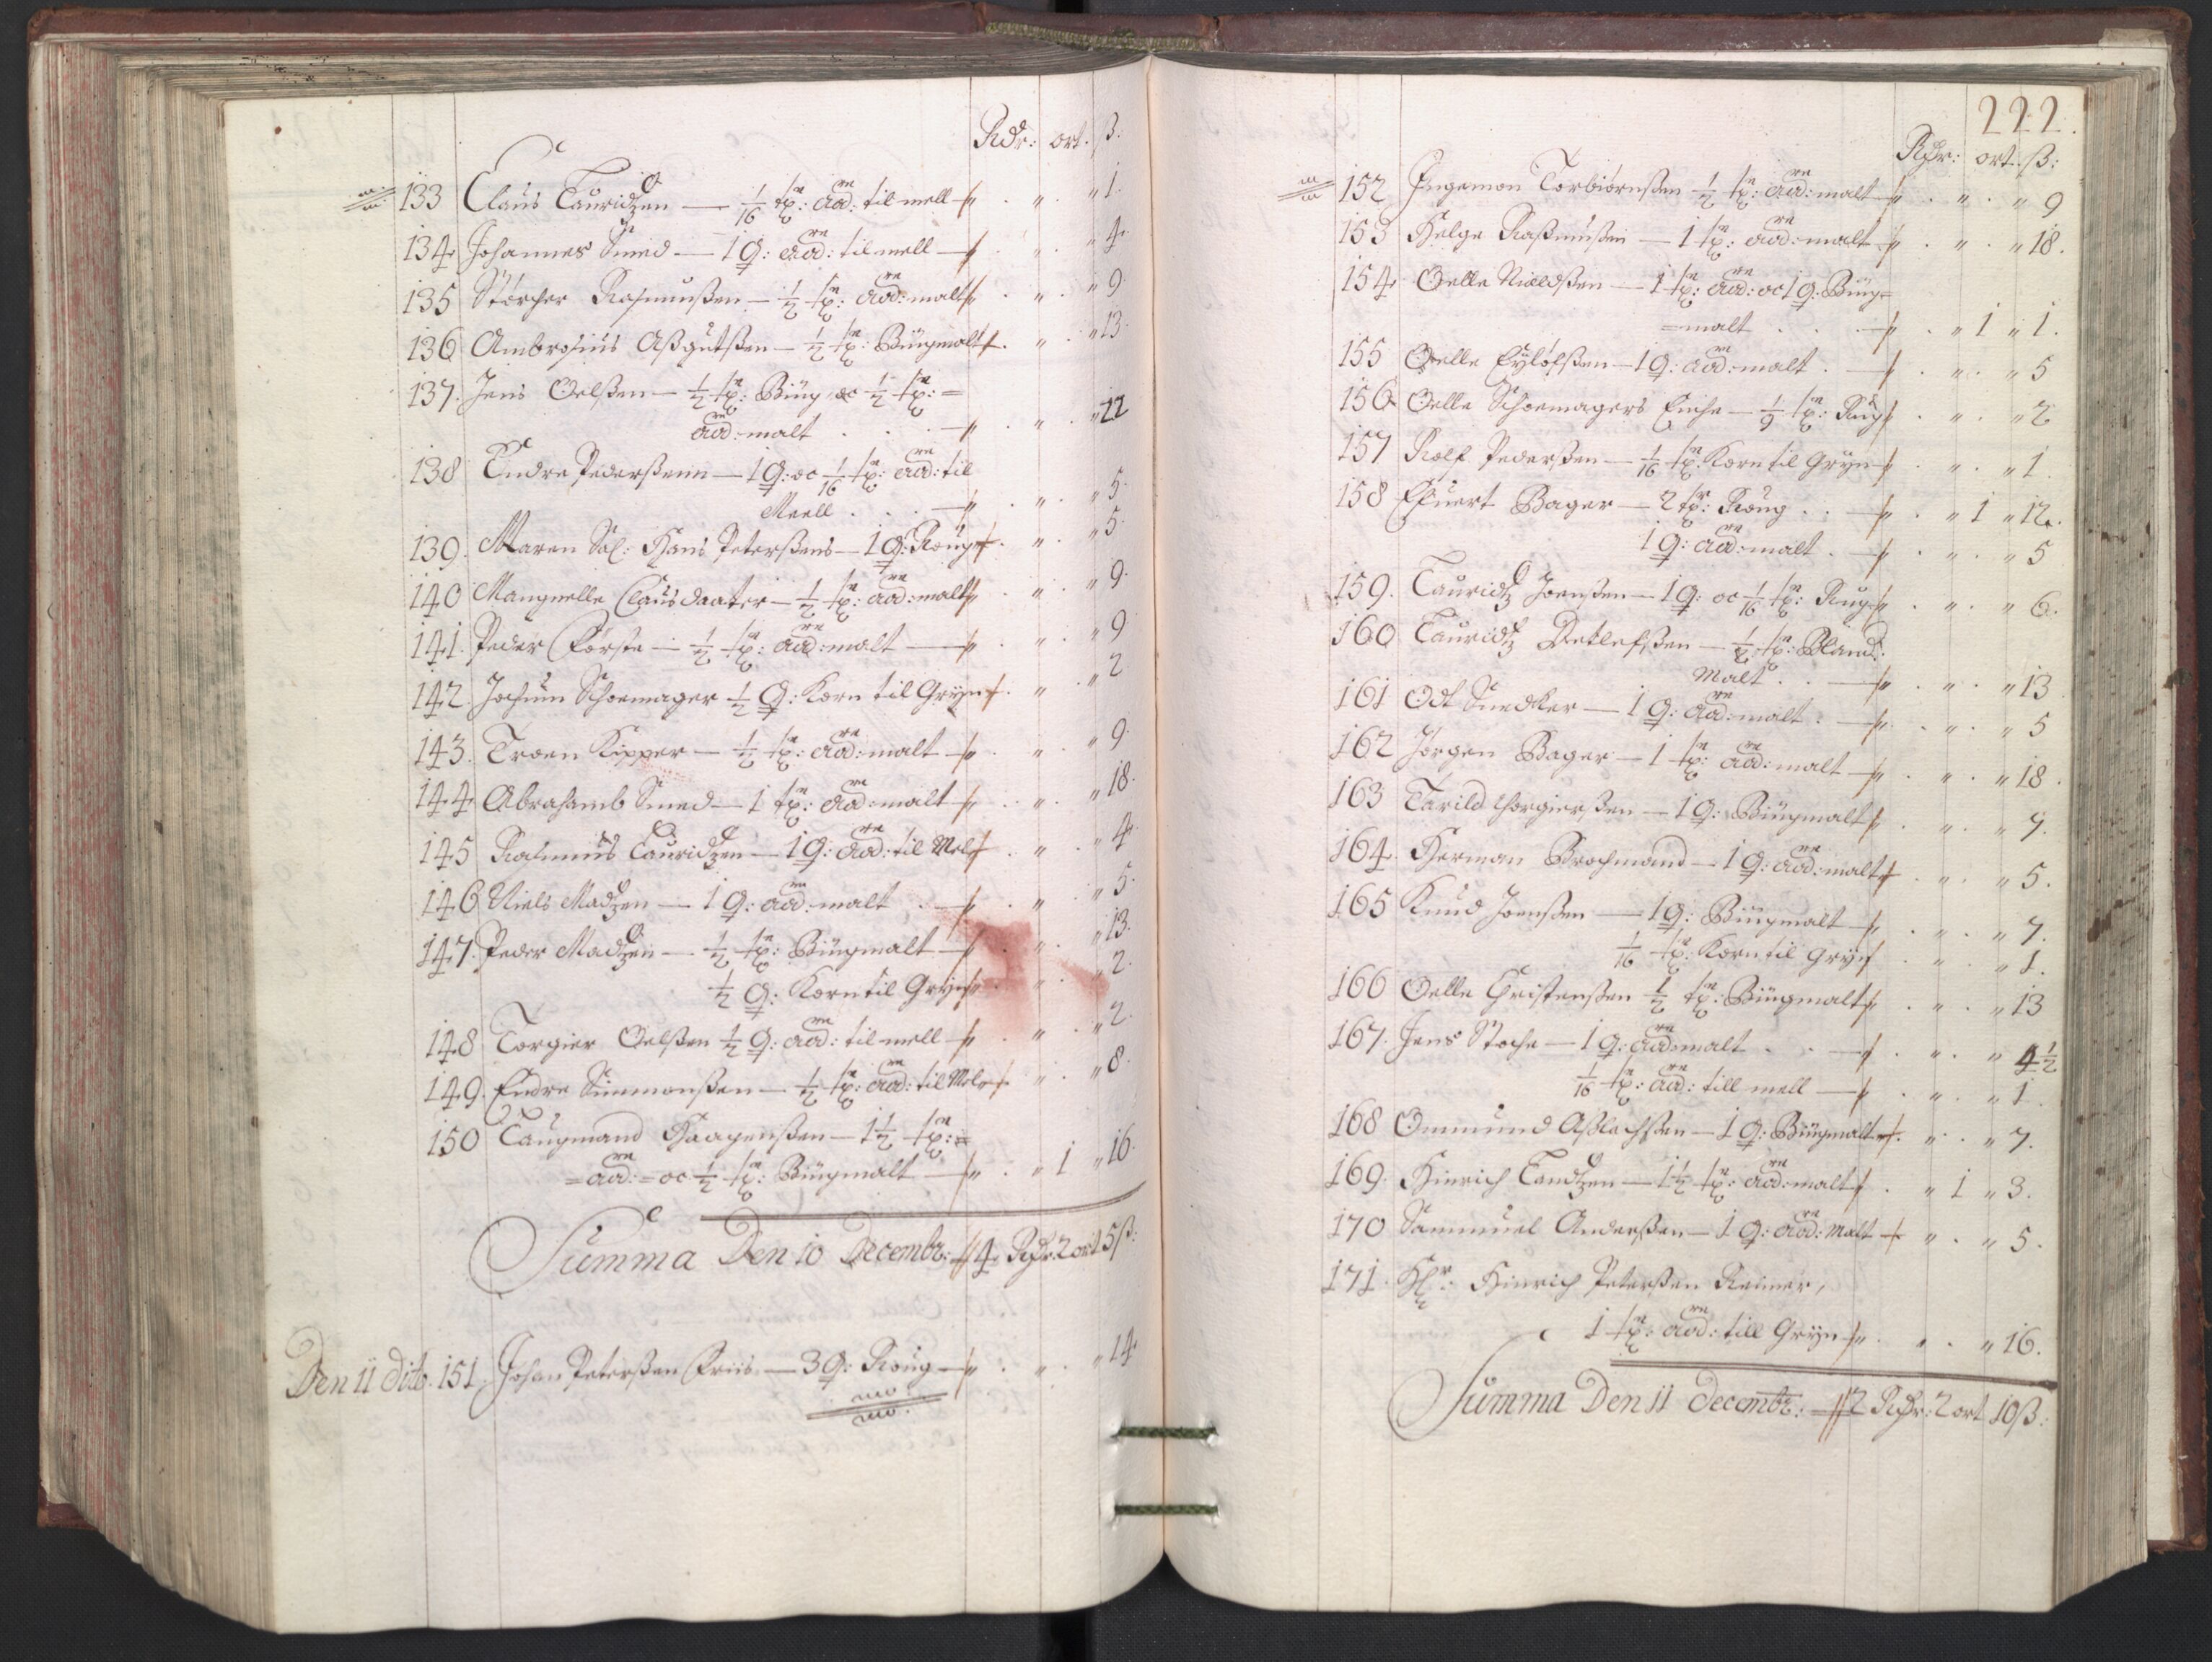 Rdr: ort. ß:
133 Claus Lauridzen — 1/16 tn: aad: til mell — " . " . " 1.
134. Johannes Smed — 1 q: aad: til mell — " . " 4.
135 Rasmußen — 1/2 tn: aad: malt " . " . " 9.
136 Ambrosius Aßgutßen — 1/2 tn: Bügmalt . " . " 13.
137. Jens Oelßen — 1/2 tn: Büg oc 1/2 tn: =
aad: malt . . . — " . " . " 22
138 Endre Pederßenn — 1 q: oc 1/16 tn: aad: til
Meell . . . — " . " . " 5.
139. Maren Sal: Hans Peterßens — 1 q: Roug . " . " 5.
140 Mangnelle Clausdaater — 1/2 tn: aad: malt " . " . " 9.
141. Peder Förste — 1/2 tn: aad: malt — " . " . " 9
142. Jochum Schoemager 1/2 q: Korn til Gryn . " . " 2
143. Troen Kipper — 1/2 tn: aad: malt — " . " . " 9.
144 Abrahamb Smed — 1 tn: aad: malt — " . " . " 18.
145 Rasmus Lauridzen — 1 q: aad: til Mel . " . " 4.
146 Niels Madzen — 1 q: aad: malt . — " . " . " 5.
147. Peder Madzen — 1/2 tn: Bügmalt — " . " . " 13.
1/2 q: Korn til Gryn " . " . " 2.
148 Torgier Oelßen 1/2 q: aad: til mell — " . " . " 2.
149. Endre Simmonßen — 1/2 tn: aad: til Mel . " . " 8.
150 Laugmand Haagenßen — 1 1/2 tn: =
= aad: = oc 1/2 tn: Bügmalt — " . " 1 " 16.
Summa Den 10 Decembr: 4 Rdr: 2 ort 5 ß:
Den 11 dito. 151. Johan Peterßen Friis — 3 q: Roug — " . " . " 14.
222.
Rdr: ort. ß:
152 Ingemon Torbiörnßen 1/2 tn: aad: malt " . " . " 9
153 Helge Raßmußen — 1 tn: aad: malt " . " . " 18.
154. Oelle Nieldßen — 1 tn: aad: oc 1 q: Büg=
=malt . . . — " . " 1 " 1.
155 Oelle Eylöfßen — 1 q: aad: malt . — " . " . " 5
156 Oelle Schoemagers Enche — 1/9 tn: Rug " . " . " 2
157 Rolf Pederßen — 1/16 tn: Korn til Gryn " . " . " 1
158 Efuert Bager — 2 tn: Roug . . — " . " 1 " 12.
1 q: aad: malt . — " . " . " 5
159. Lauridz Joenßen — 1 q: oc 1/16 tn: Rug " . " . " 6.
160 Lauridz Detlefßen — 1/2 tn: Bland:
Malt . . — " . " . " 13
161 Odt Snedker — 1 q: aad: malt . — " . " . " 5
162 Jörgen Bager — 1 tn: aad: malt — " . " . " 18.
163 Tarild Thorgierßen — 1 q: Bügmalt " . " . " 7.
164. Herman Brochmand — 1 q: aad: malt . " . " 5.
165 Knud Joenßen — 1 q: Bügmalt — " . " . " 7.
1/16 tn: Korn til Gryn . " . " 1.
166 Oelle Christenßen 1/2 tn: Bügmalt " . " . " 13
167. Jens Stoche — 1 q: aad: malt . . — " . " . " 4 1/2
1/16 tn: aad: till mell — " . " . " 1.
168 Ommund Aßlachßen — 1 q: Bügmalt . " . " 7.
169. Hinrich Landzen — 1 1/2 tn: aad: malt . " 1 " 3.
170 Sammuel Anderßen — 1 q: aad: Malt — " . " 5.
171. Hr. Hinrich Peterßen Reimer,
1 tn: aad: till Gryn " . " . " 16.
Summa Den 11 Decembr: 12 Rdr: 2 ort 10 ß: